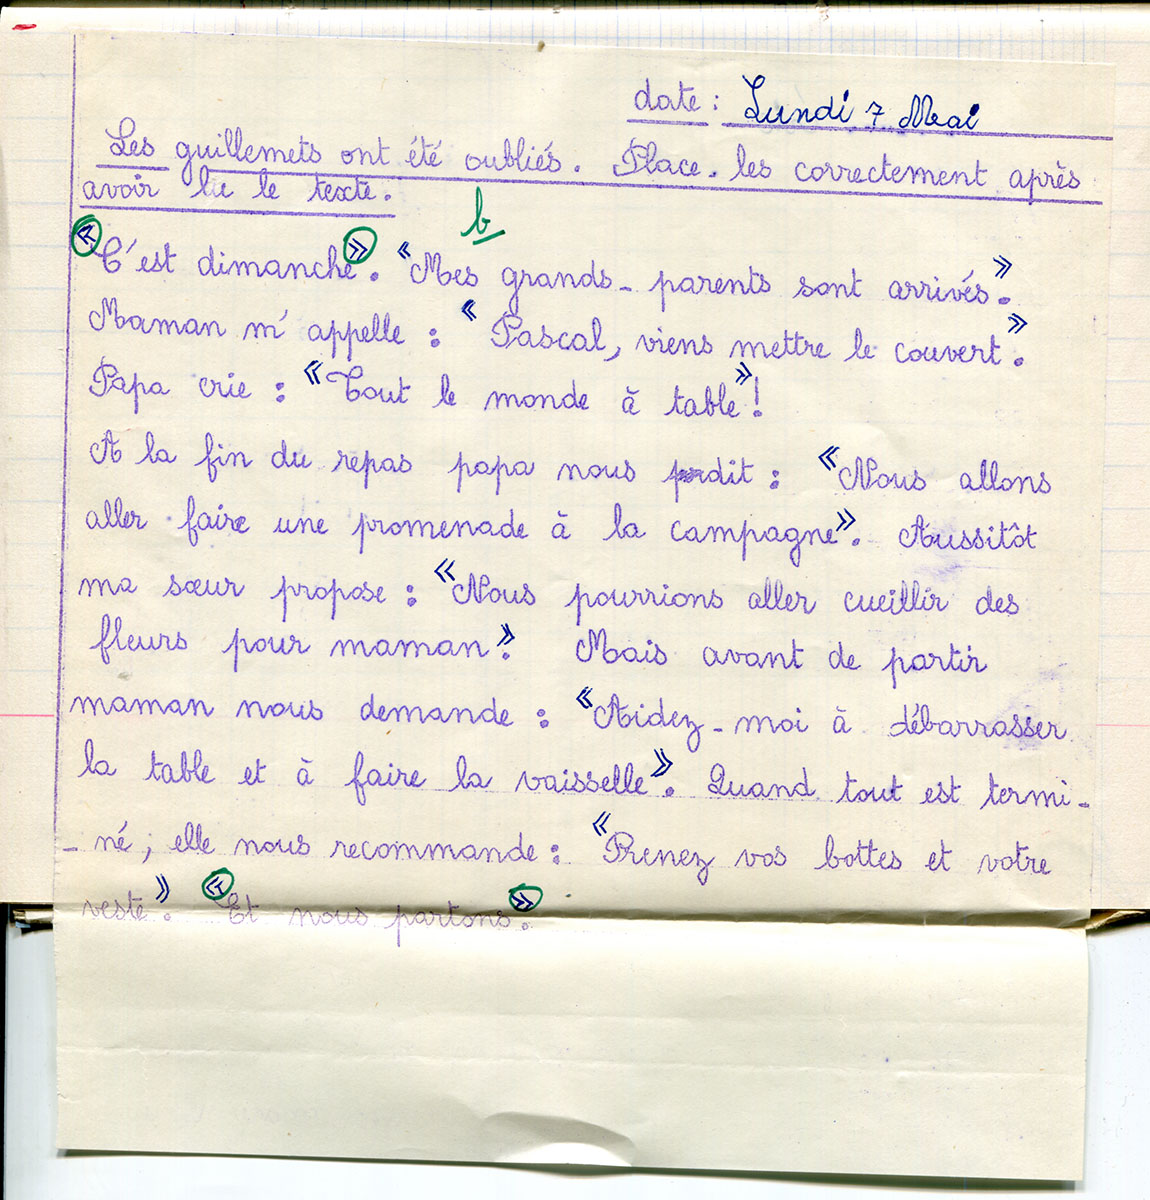 date : Lundi 7 Mai
Les guillemets ont été oubliés. Place-les correctement après
avoir lu le texte.
b
« C'est dimanche ». « Mes grands-parents sont arrivés ».
Maman m'appelle : « Pascal, viens mettre le couvert ».
Papa crie : « Tout le monde à table » !
A la fin du repas papa nous dit : « Nous allons
aller faire une promenade à la campagne ». Aussitôt
ma sœur propose : « Nous pourrions aller cueillir des
fleurs pour maman ». Mais avant de partir
maman nous demande : « Aidez-moi à débarrasser
la table et à faire la vaisselle ». Quand tout est termi-
-né, elle nous recommande : « Prenez vos bottes et votre
veste ». « Et nous partons ».